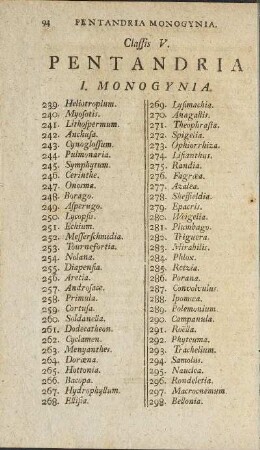 94 PENTANDRIA MONOGYNIA.
Classis V.
PENTANDRIA
I. MONOGYNIA.
239. Heliotropium.
240. Myosotis.
241. Lithospermum.
242. Anchusa.
243. Cynoglossum.
244. Pulmonaria.
245. Symphytum.
246. Cerinthe.
247. Onosma.
248. Borago.
249. Asperugo.
250. Lycopsis.
251. Echium.
252. Messerschmidia.
253. Tournefortia.
254. Nolana.
255. Diapensia.
256. Aretia.
257. Androsace.
258. Primula.
259. Cortusa.
260. Soldanella.
261. Dodecatheon.
262. Cyclamen.
263. Menyanthes.
264. Doræna.
265. Hottonia.
266. Bacopa.
267. Hydrophyllum.
268. Ellisia.
269. Lysimachia.
270. Anagallis.
271. Theophrasta.
272. Spigelia.
273. Ophiorrhiza.
274. Lisianthus.
275. Randia.
276. Fagræa.
277. Azalea.
278. Sheffieldia.
279. Epacris.
280. Weigelia.
281. Plumbago.
282. Triguera.
283. Mirabilis.
284. Phlox.
285. Retzia.
286. Porana.
287. Convolvulus.
288. Ipomœa.
289. Polemonium.
290. Campanula.
291. Roëlla.
292. Phyteuma.
293. Trachelium.
294. Samolus.
295. Nauclea.
296. Rondeletia.
297. Macrocnemum.
298. Bellonia.